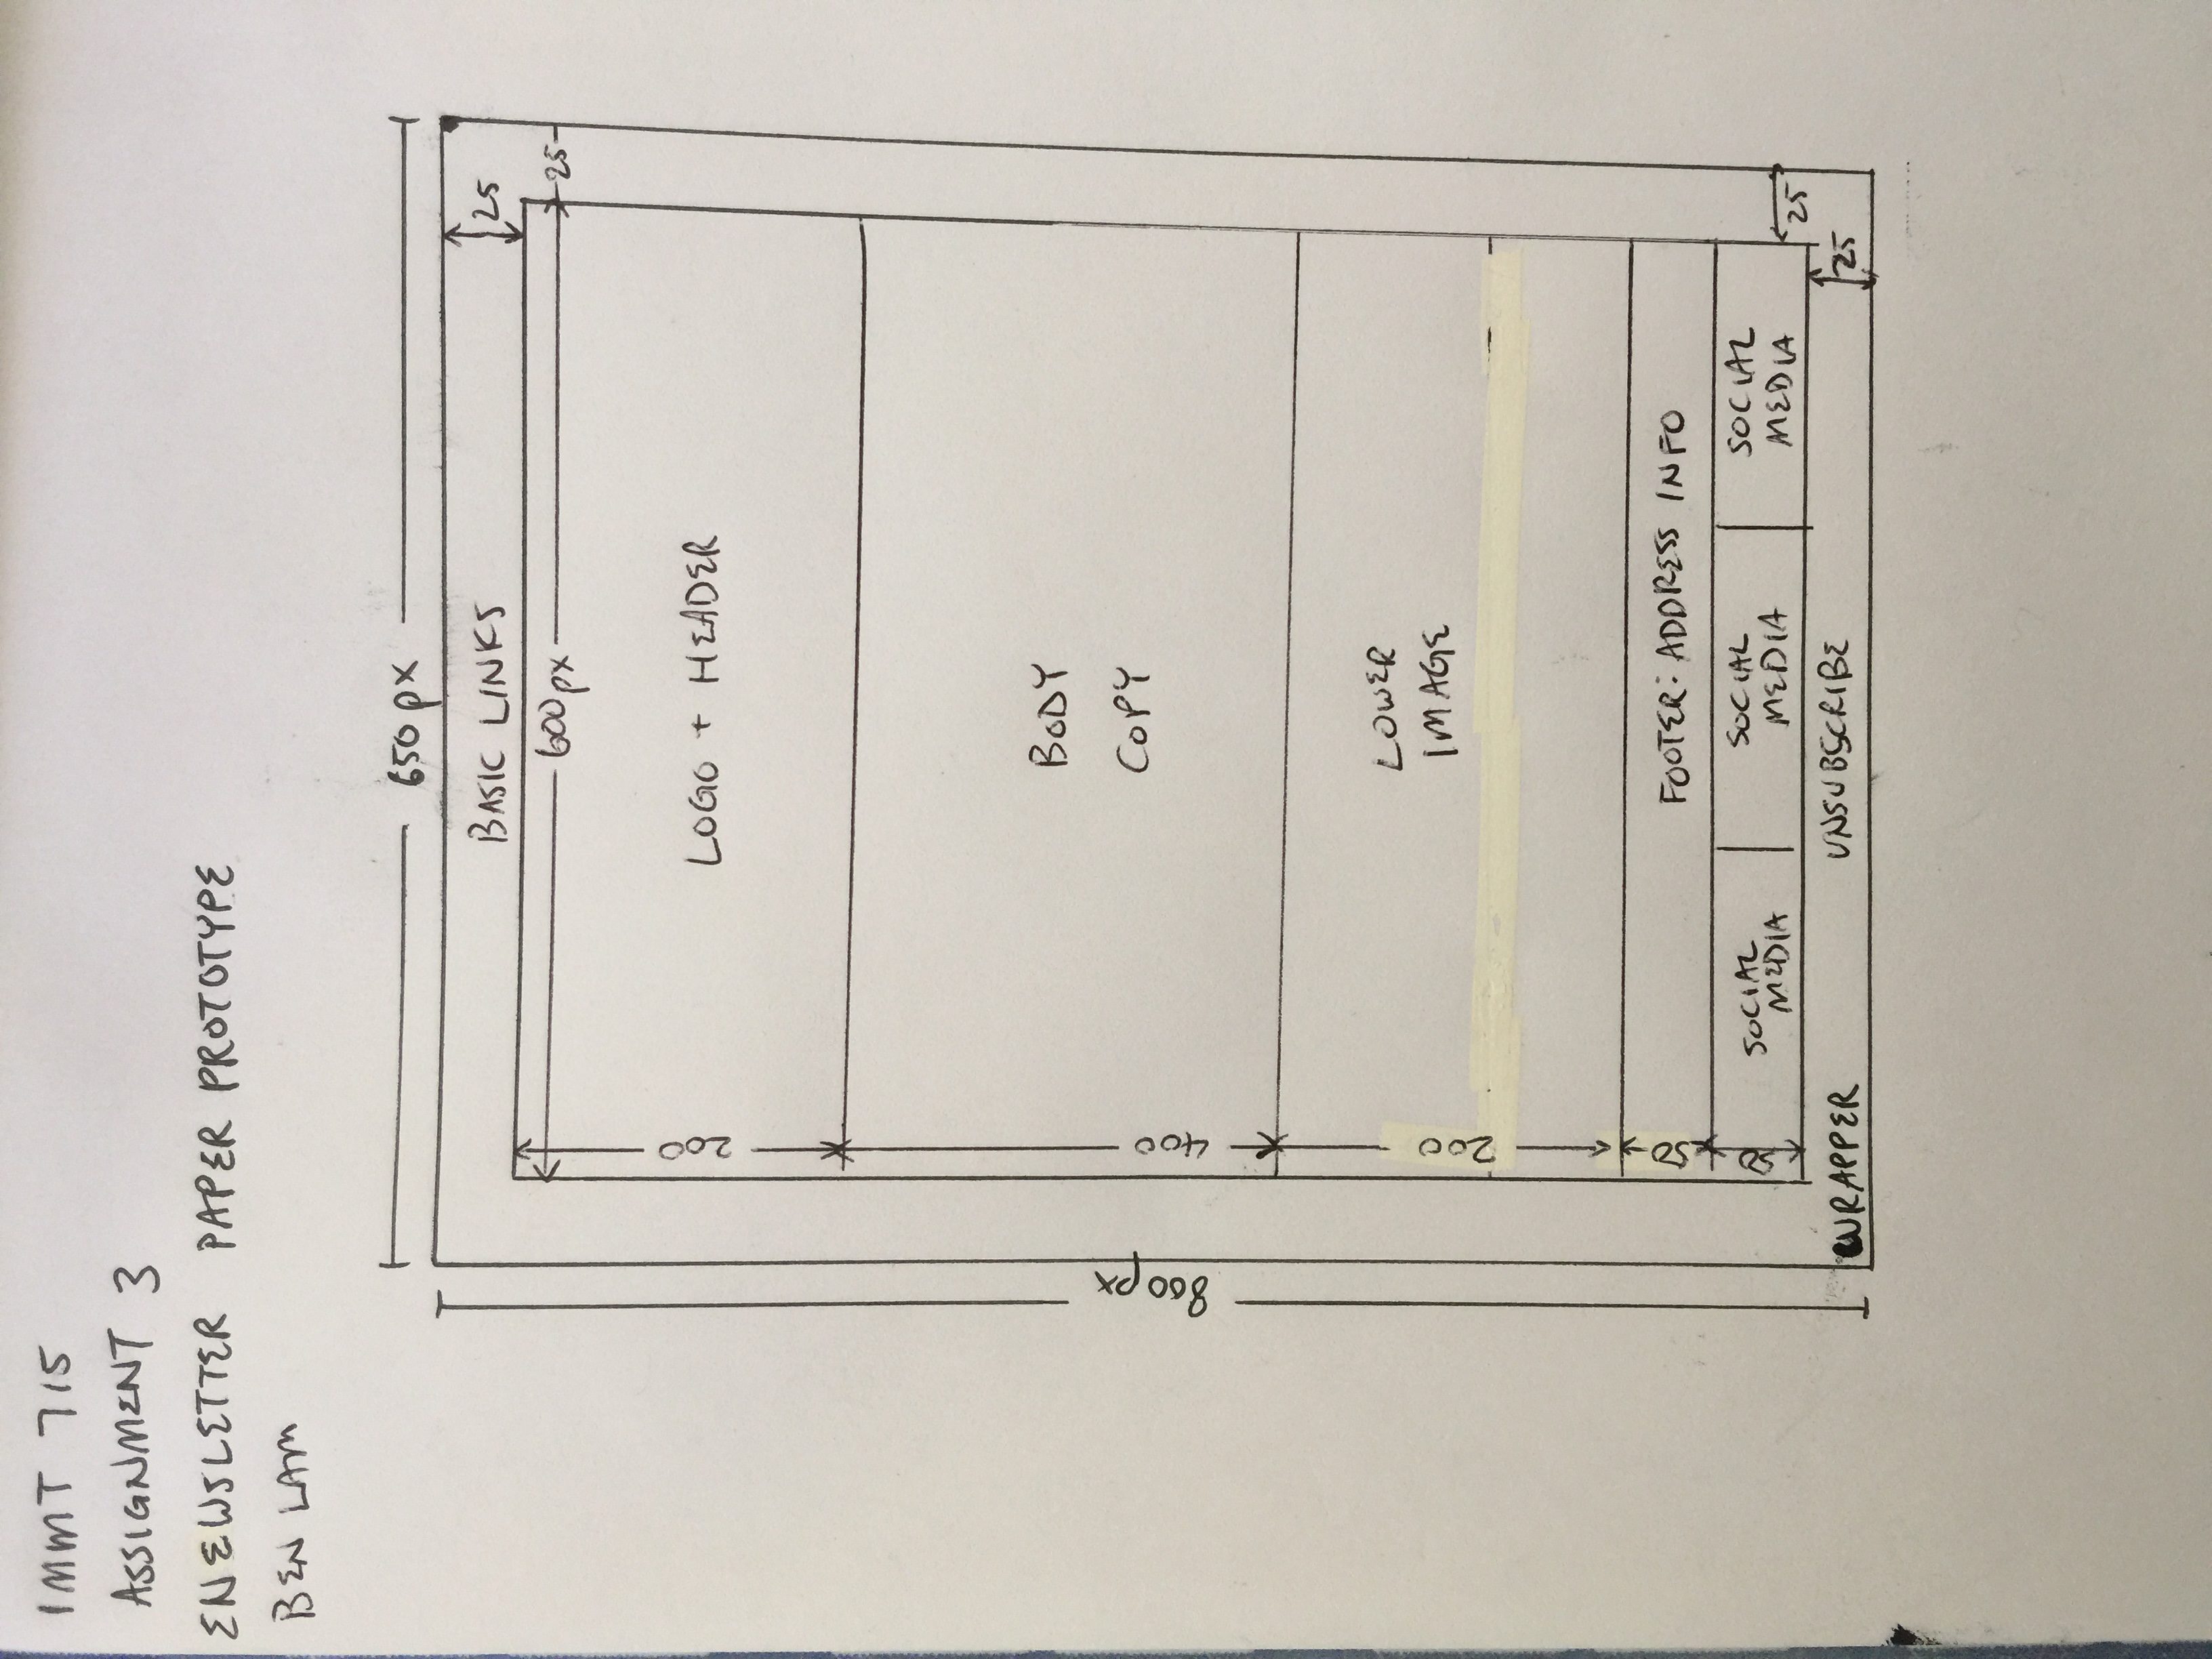 IMMT 715
ASSIGNMENT 3
ENEWSLETTER PAPER PROTOTYPE
BEN LAM
650px
BASIC LINKS
25
600px
25
200
LOGO + HEADER
BODY
COPY
800px
400
LOWER
IMAGE
200
50
FOOTER: ADDRESS INFO
50
SOCIAL
MEDIA
SOCIAL
MEDIA
SOCIAL
MEDIA
25
WRAPPER
UNSUBSCRIBE
25